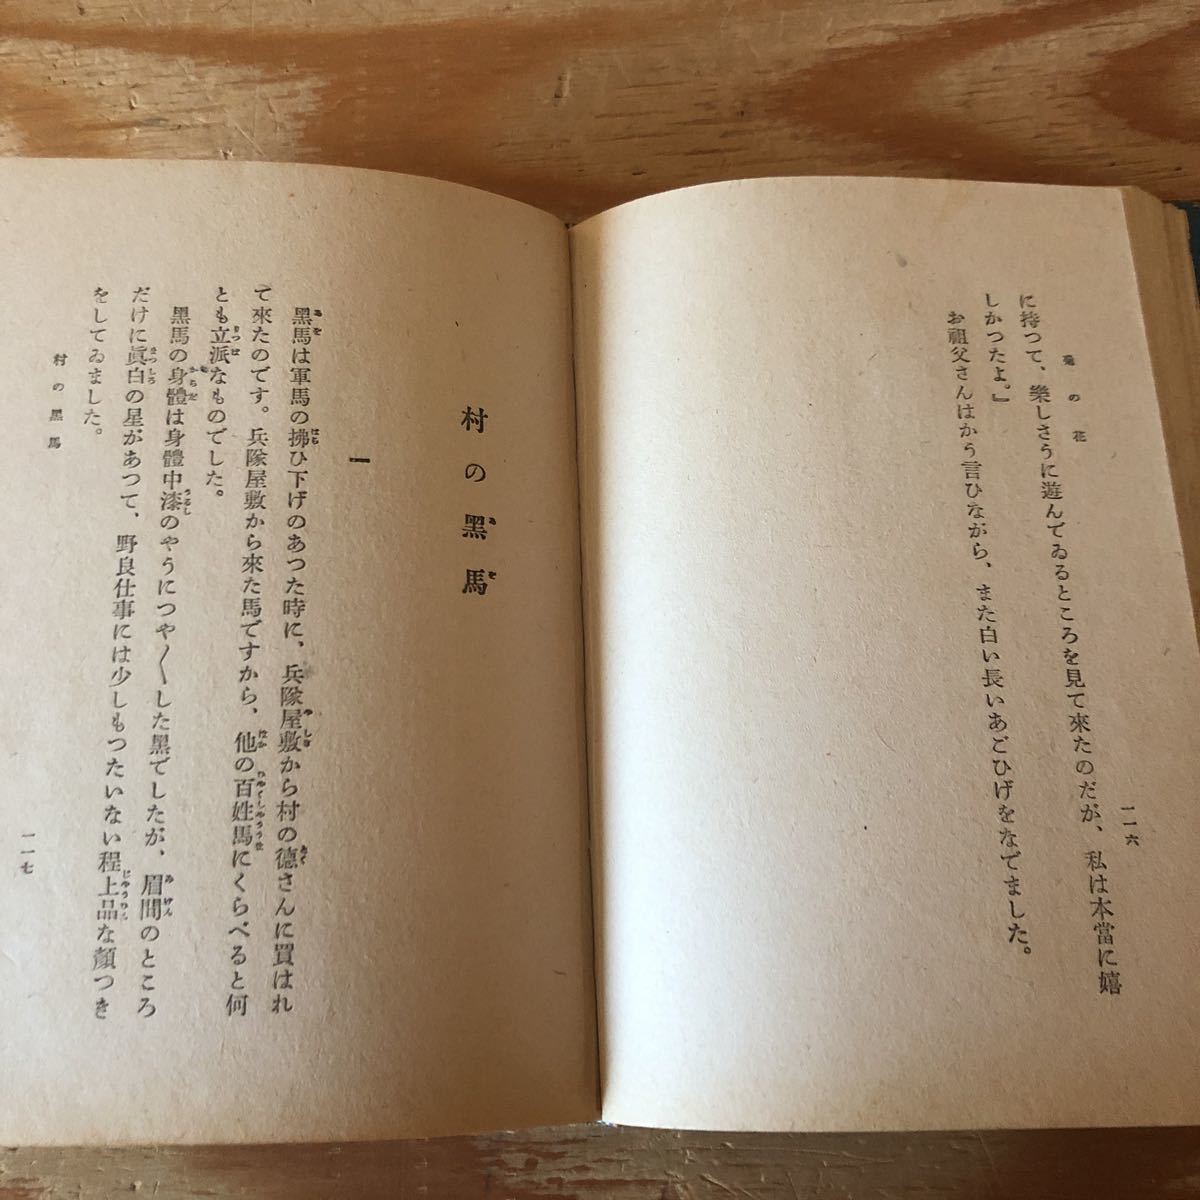 の花
一一六
に持つて、樂しさうに遊んでゐるところを見て來たのだが、私は本當に嬉
しかつたよ。』
お祖父さんはかう言ひながら、また白い長いあごひげをなでました。
村の黑馬
一
黑馬は軍馬の拂ひ下げのあつた時に、兵隊屋敷から村の德さんに買はれ
て來たのです。兵隊屋敷から來た馬ですから、他の百姓馬にくらべると何
とも立派なものでした。
黑馬の身體は身體中漆のやうにつや〱した黑でしたが、眉間のところ
だけに眞白の星があつて、野良仕事には少しもつたいない程上品な顏つき
をしてゐました。
村の黑馬
一一七